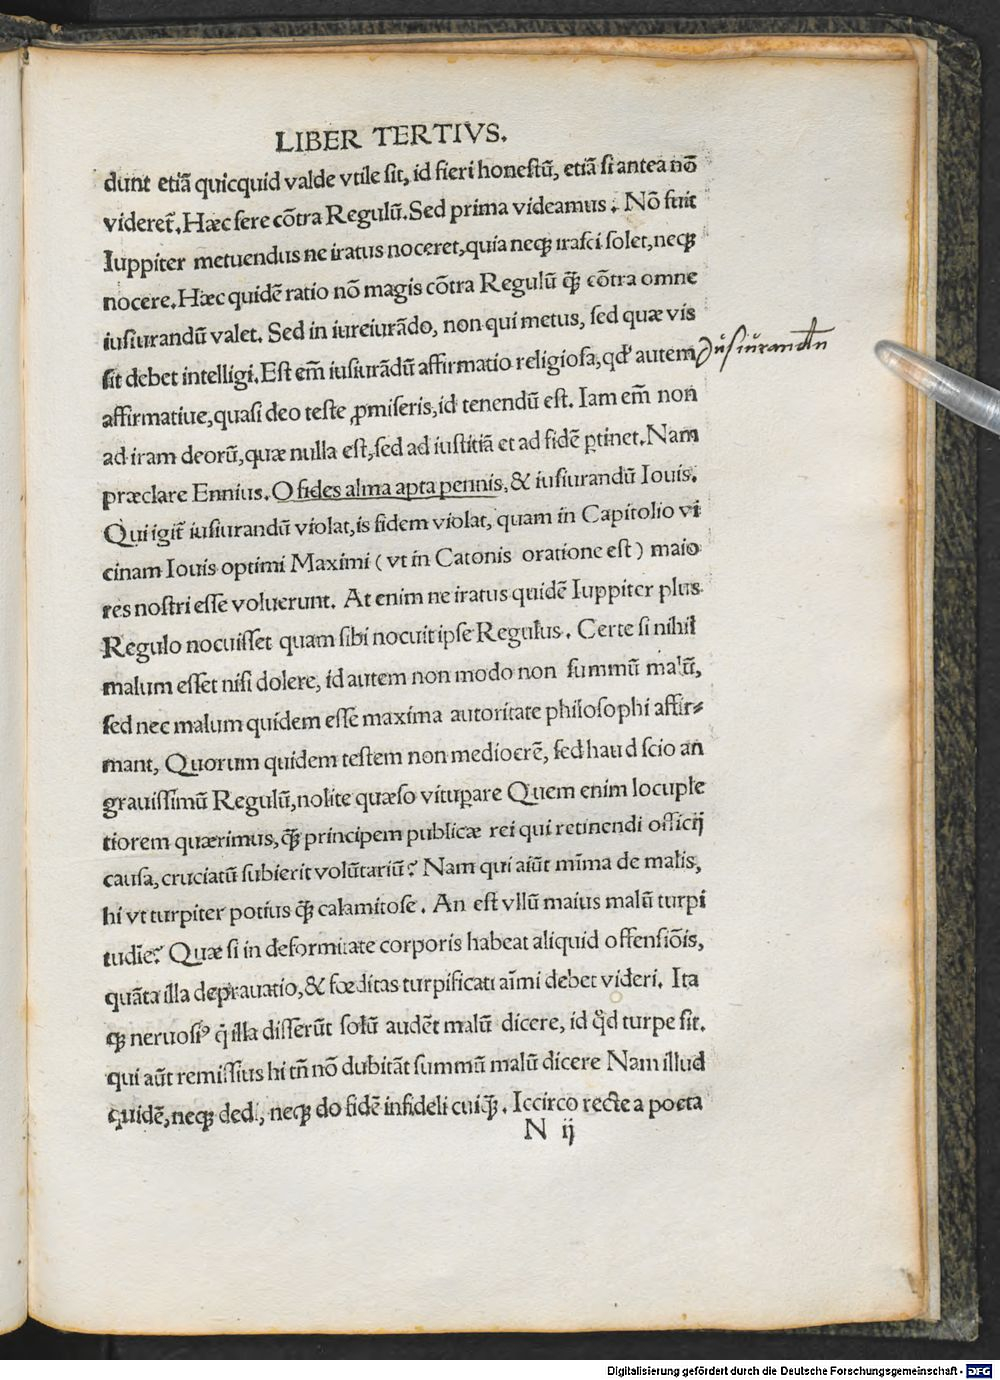 LIBER TERTIVS.
dunt etiã quicquid valde vtile sit, id fieri honestũ, etiã si antea nõ
videret᷑. Hæc fere cõtra Regulũ. Sed prima videamus. Nõ fuit
Iuppiter metuendus ne iratus noceret, quia neqꝫ irasci solet, neqꝫ
nocere. Hæc quidẽ ratio nõ magis cõtra Regulũ q̃ꝫ cõtra omne
iusiurandũ valet. Sed in iureiurãdo, non qui metus, sed quæ vis
sit debet intelligi. Est em̃ iusiurãdũ affirmatio religiosa, qd' autem
Iusiurandũ
affirmatiue, quasi deo teste ꝓmiseris, id tenendũ est. Iam em̃ non
ad iram deorũ, quæ nulla est, sed ad iustitiã et ad fidẽ ꝑtinet. Nam
præclare Ennius. O fides alma apta pennis, & iusiurandũ Iouis.
Qui igit᷑ iusiurandũ violat, is fidem violat, quam in Capitolio vi
cinam Iouis optimi Maximi ( vt in Catonis oratione est ) maio
res nostri esse voluerunt. At enim ne iratus quidẽ Iuppiter plus
Regulo nocuisset quam sibi nocuit ipse Regulus. Certe si nihil
malum esset nisi dolere, id autem non modo non summũ malũ,
sed nec malum quidem esse maxima autoritate philosophi affir⸗
mant, Quorum quidem testem non mediocrẽ, sed haud scio an
grauissimũ Regulũ, nolite quæso vituꝑare Quem enim locuple
tiorem quærimus, q̃ꝫ principem publicæ rei qui retinendi officij
causa, cruciatũ subierit volũtariũ? Nam qui aiũt mĩma de malis,
hi vt turpiter potius q̃ꝫ calamitose. An est vllũ maius malũ turpi
tudĩe? Quæ si in deformitate corporis habeat aliquid offensiõis,
quãta illa deprauatio, & fœditas turpificati aĩmi debet videri. Ita
qꝫ neruosiꝰ q̇ illa disserũt solũ audẽt malũ dicere, id qd̾ turpe sit.
qui aũt remissius hi tñ nõ dubitãt summũ malũ dicere Nam illud
quidẽ, neqꝫ dedi, neqꝫ do fidẽ infideli cuiq̃ꝫ. Iccirco recte a poeta
N ij
Digitalisierung gefördert durch die Deutsche Forschungsgemeinschaft - DFG